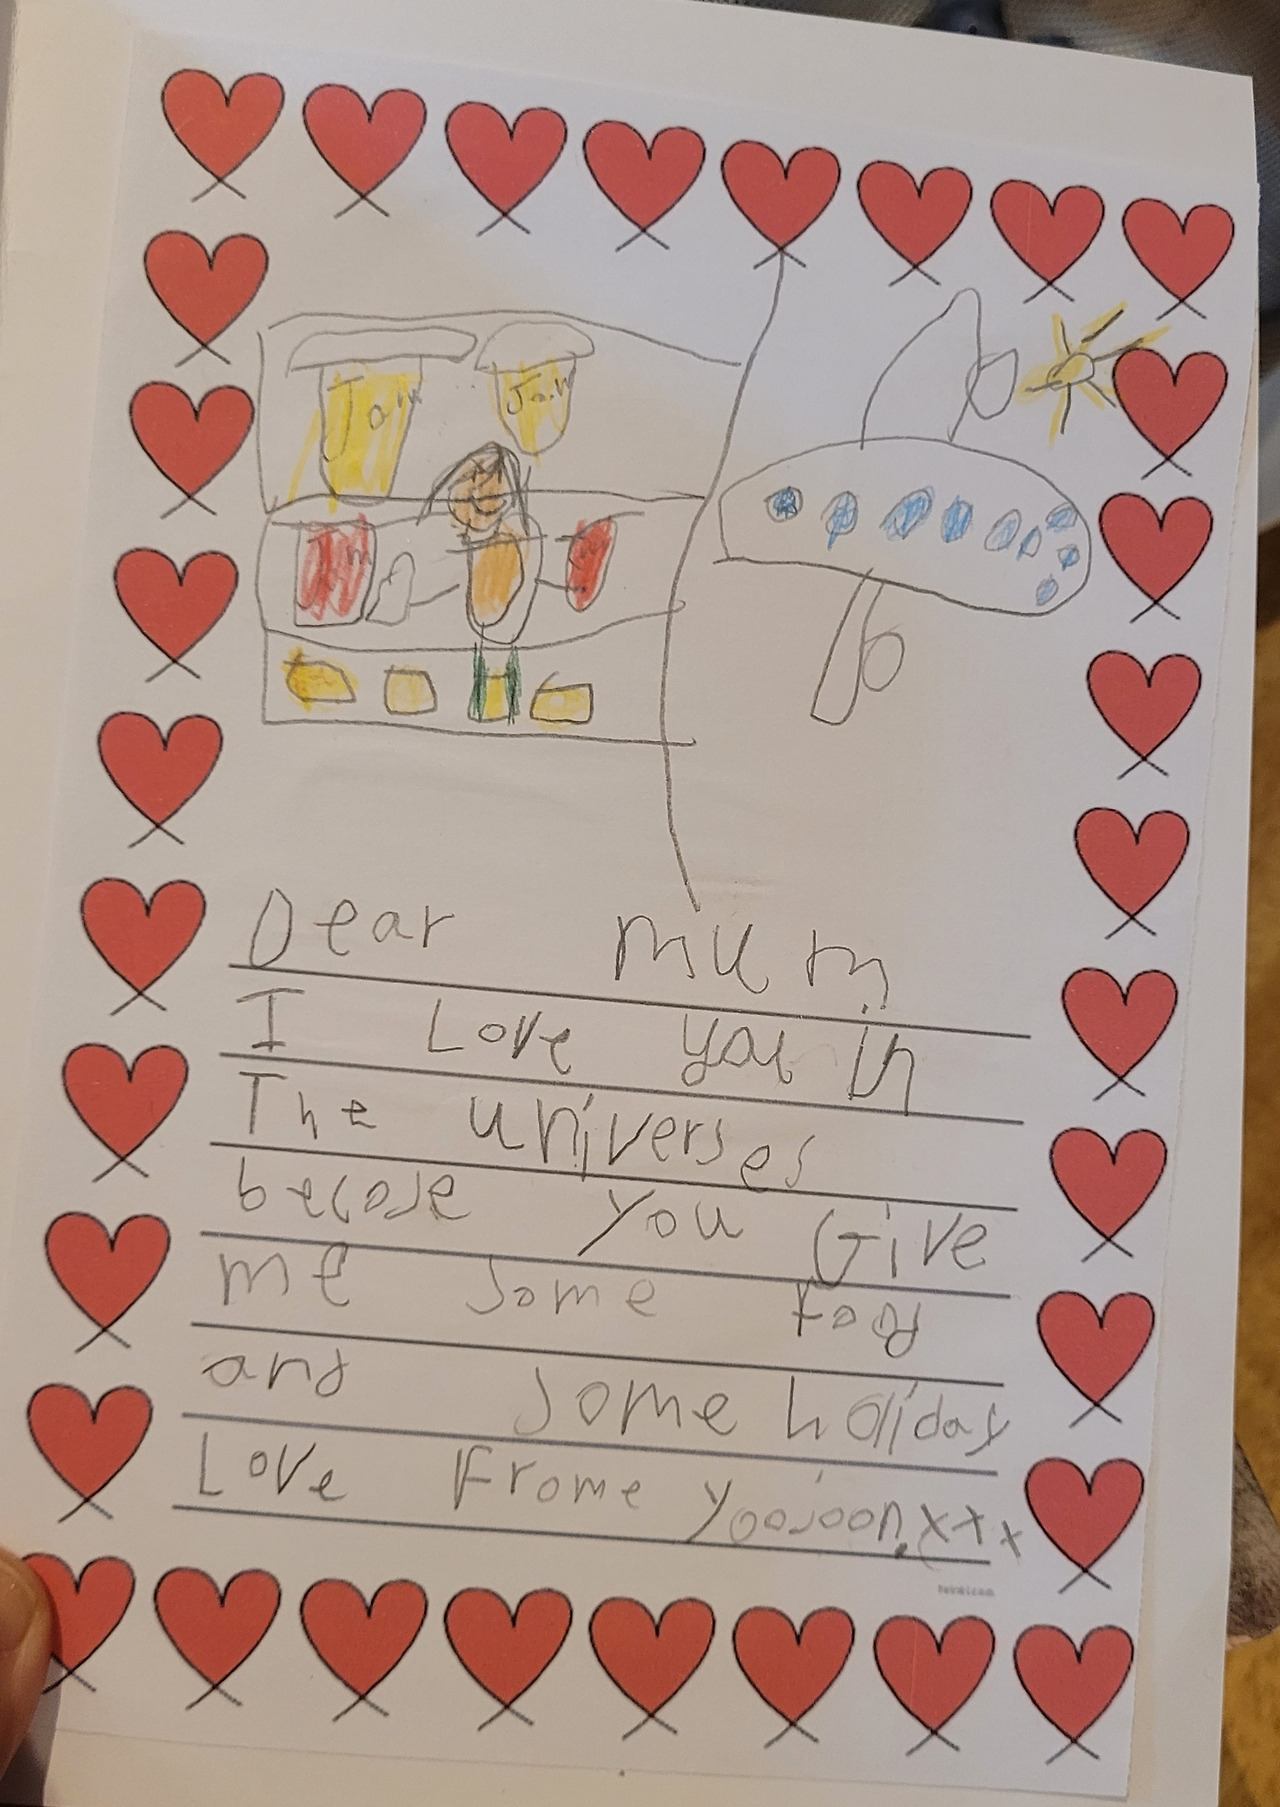 Jam Jam
Jam Jam
Dear mum
I Love you in
The universes
becose you Give
me some food
and some holiday
Love Frome Yoojoon.xxx
twinkl.com